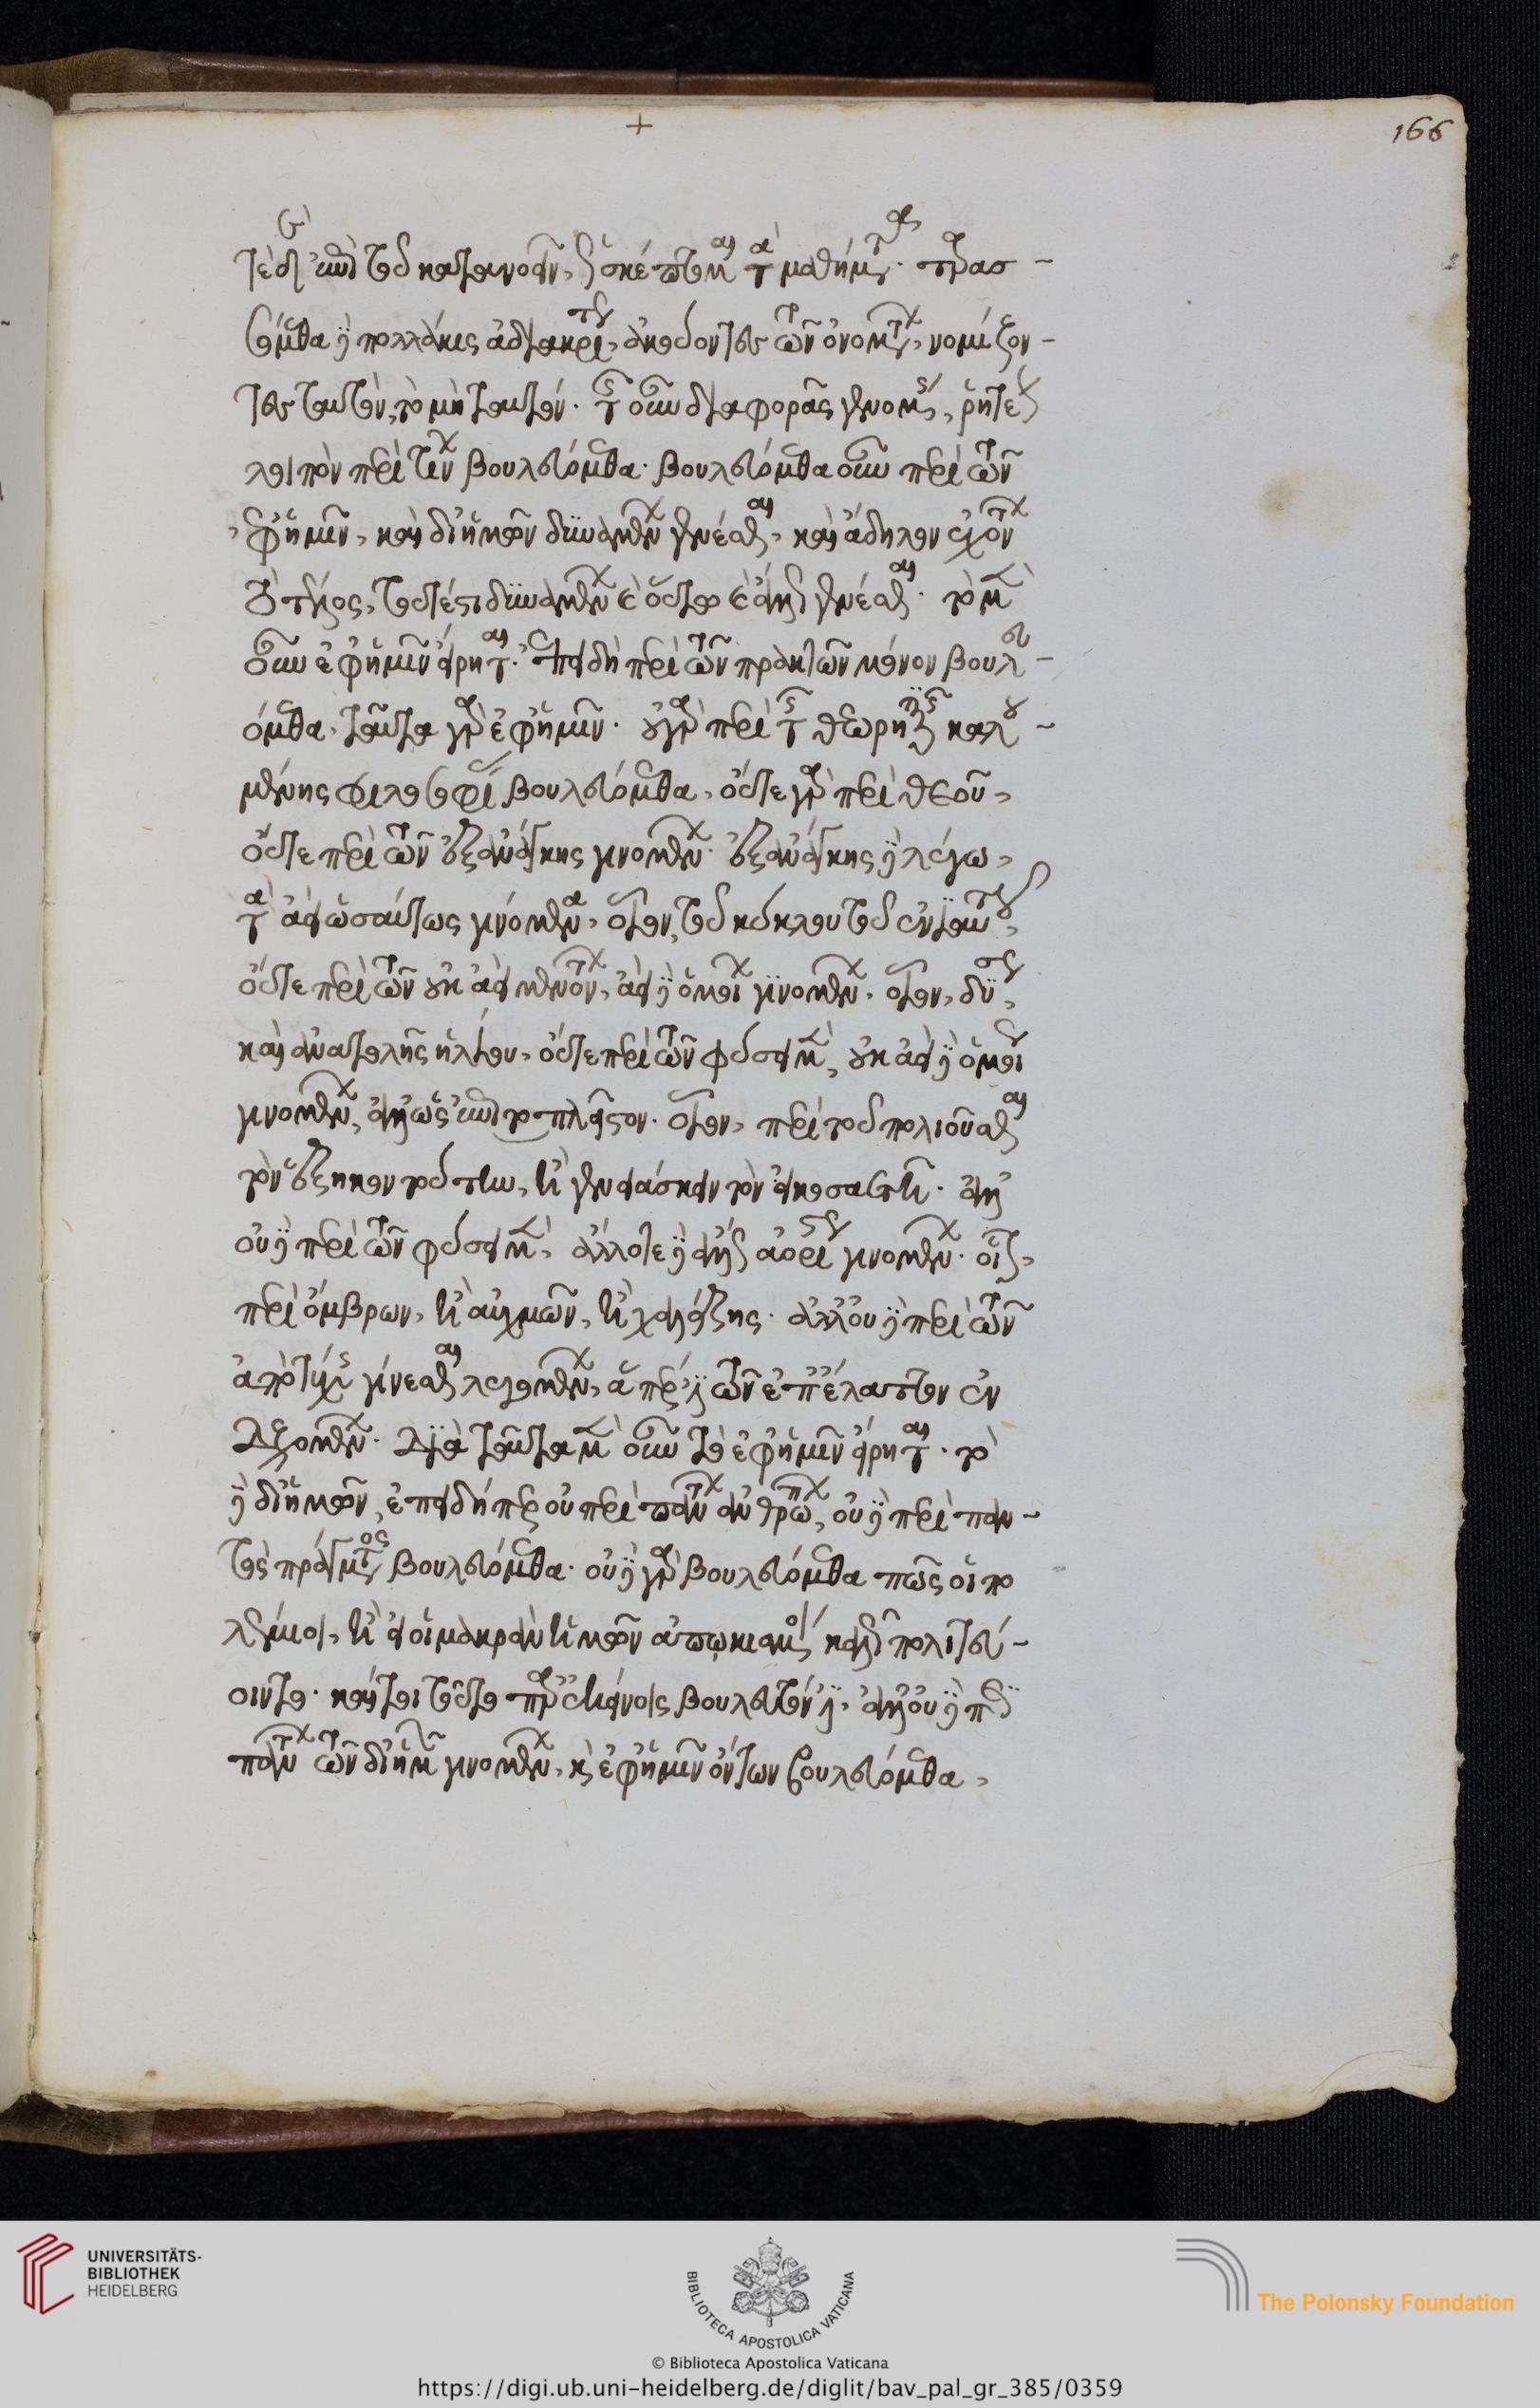 +
166
τὸ δὲ ἐπὶ τοῦ κατανοεῖν, ὃ σκέπτεται τὰ μαθήματα. ταρασ-
σόμεθα δὲ πολλάκις ἀδιακρίτως ἀκούοντες τῶν ὀνομάτων, νομίζον-
τες ταυτόν, τὸ μὴ ταυτόν. τῆς οὖν διαφορᾶς γενομένης, ῥητέον
λοιπὸν περὶ τίνων βουλευόμεθα. βουλευόμεθα οὖν περὶ τῶν
ἐφ' ἡμῖν, καὶ δι' ἡμῶν δυναμένων γενέσθαι, καὶ ἄδηλον ἐχόντων
τὸ τέλος, τουτέστι δυναμένων καὶ οὕτω καὶ ἄλλως γενέσθαι. τὸ μὲν
οὖν ἐφ' ἡμῖν εἴρηται. ἐπειδὴ περὶ τῶν πρακτῶν μόνον βουλευ-
όμεθα. ταῦτα γὰρ ἐφ' ἡμῖν. οὐ γὰρ περὶ τῆς θεωρητικῆς καλου-
μένης φιλοσοφίας βουλευόμεθα, οὔτε γὰρ περὶ θεοῦ,
οὔτε περὶ τῶν ἐξ ἀνάγκης γινομένων. ἐξ ἀνάγκης δὲ λέγω,
τὰ ἀεὶ ὡσαύτως γινόμενα, οἷον, τοῦ κύκλου τοῦ ἐνιαυτοῦ,
οὔτε περὶ τῶν οὐκ ἀεὶ μενόντων, ἀεὶ δὲ ὁμοίως γινομένων. οἷον, δύσεως,
καὶ ἀνατολῆς ἡλίου, οὔτε περὶ τῶν φύσει μὲν, οὐκ ἀεὶ δὲ ὁμοίως
γινομένων, ἀλλ' ὡς ἐπὶ τὸ πλεῖστον. οἷον, περὶ τοῦ πολιοῦσθαι
τὸν ἑξηκοντούτην, ἢ γενειάσκειν τὸν εἰκοσαετῆ. ἀλλ'
οὐδὲ περὶ τῶν φύσει μὲν, ἄλλοτε δὲ ἄλλως ἀορίστως γινομένων. οἷον,
περὶ ὄμβρων, ἢ αὐχμῶν, ἢ χαλάζης. ἀλλ' οὐδὲ περὶ τῶν
ἀπὸ τύχης γίνεσθαι λεγομένων, ἅπερ ἐστὶ τῶν ἐπ' ἔλαττον ἐν
δεχομένων. διὰ ταῦτα μὲν οὖν τὸ ἐφ' ἡμῖν εἴρηται. τὸ
δὲ δι' ἡμῶν, ἐπειδήπερ οὐ περὶ πάντων ἀνθρώπων, οὐδὲ περὶ παν-
τὸς πράγματος βουλευόμεθα. οὐδὲ γὰρ βουλευόμεθα πῶς οἱ πο
λέμιοι, ἢ οἱ μακρὰν ἡμῶν ἀπῳκισμένοι καλῶς πολιτεύ-
οιντο. καίτοι τοῦτο παρ' ἐκείνοις βουλευτόν ἐστιν, ἀλλ' οὐδὲ περὶ
πάντων τῶν δι' ἡμῶν γινομένων, καὶ ἐφ' ἡμῖν ὄντων βουλευόμεθα,
UNIVERSITÄTS-
BIBLIOTHEK
HEIDELBERG
BIBLIOTECA APOSTOLICA VATICANA
The Polonsky Foundation
© Biblioteca Apostolica Vaticana
https://digi.ub.uni-heidelberg.de/diglit/bav_pal_gr_385/0359